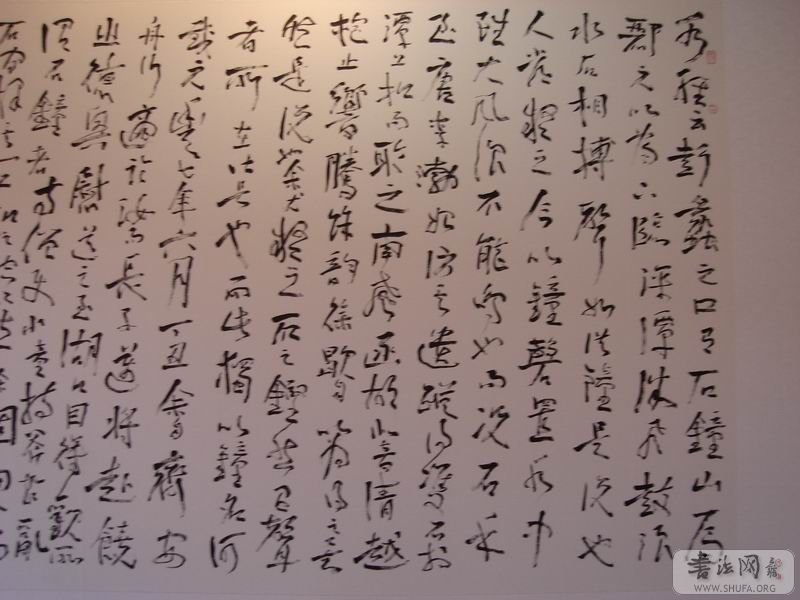 水經云彭蠡之口有石鐘山焉
酈元以為下臨深潭微風鼓浪
水石相搏聲如洪鐘是說也
人常疑之今以鐘磬置水中
雖大風浪不能鳴也而況石乎
至唐李渤始訪其遺蹤得雙石於
潭上扣而聆之南聲函胡北音清越
枹止響騰餘韻徐歇自以為得之矣
然是說也余尤疑之石之鏗然有聲
者所在皆是也而此獨以鐘名何
哉元豐七年六月丁丑余自齊安
舟行適於汝而長子邁將赴饒
之德興尉送之至湖口因得觀所
謂石鐘者寺僧使小童持斧於亂
石間擇其一
书法网
WWW.SHUFA.ORG